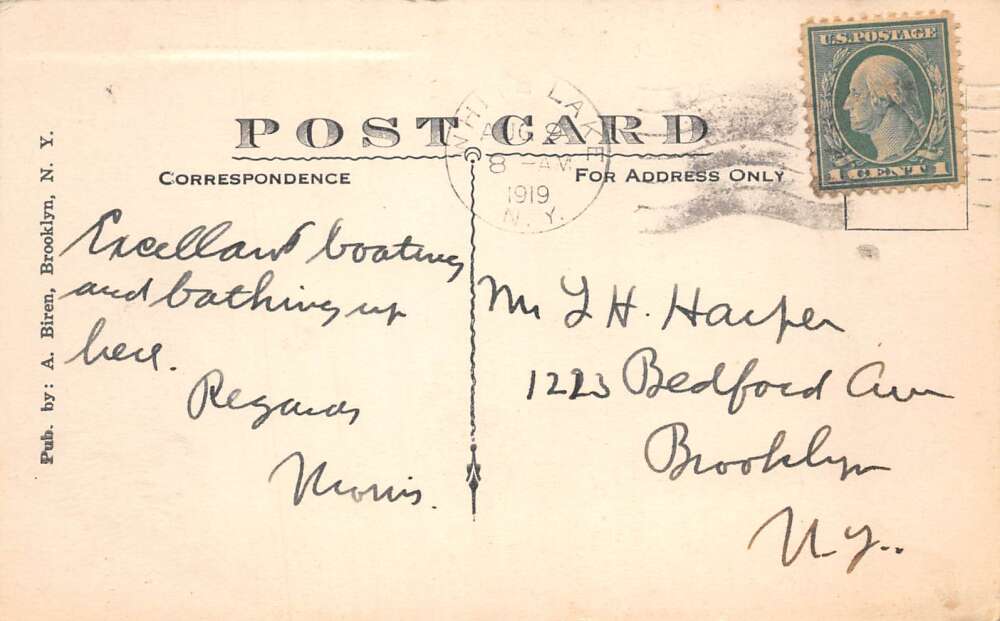 U.S. POSTAGE
1 CENT 1
WHITE LAKE
AUG 9
8 - AM
1919
N. Y.
POST CARD
CORRESPONDENCE
FOR ADDRESS ONLY
Pub. by: A. Biren, Brooklyn, N. Y.
Excellant boating
and bathing up
here.
Regards
Morris.
Mr L H. Harper
1223 Bedford Ave
Brooklyn
N.Y..